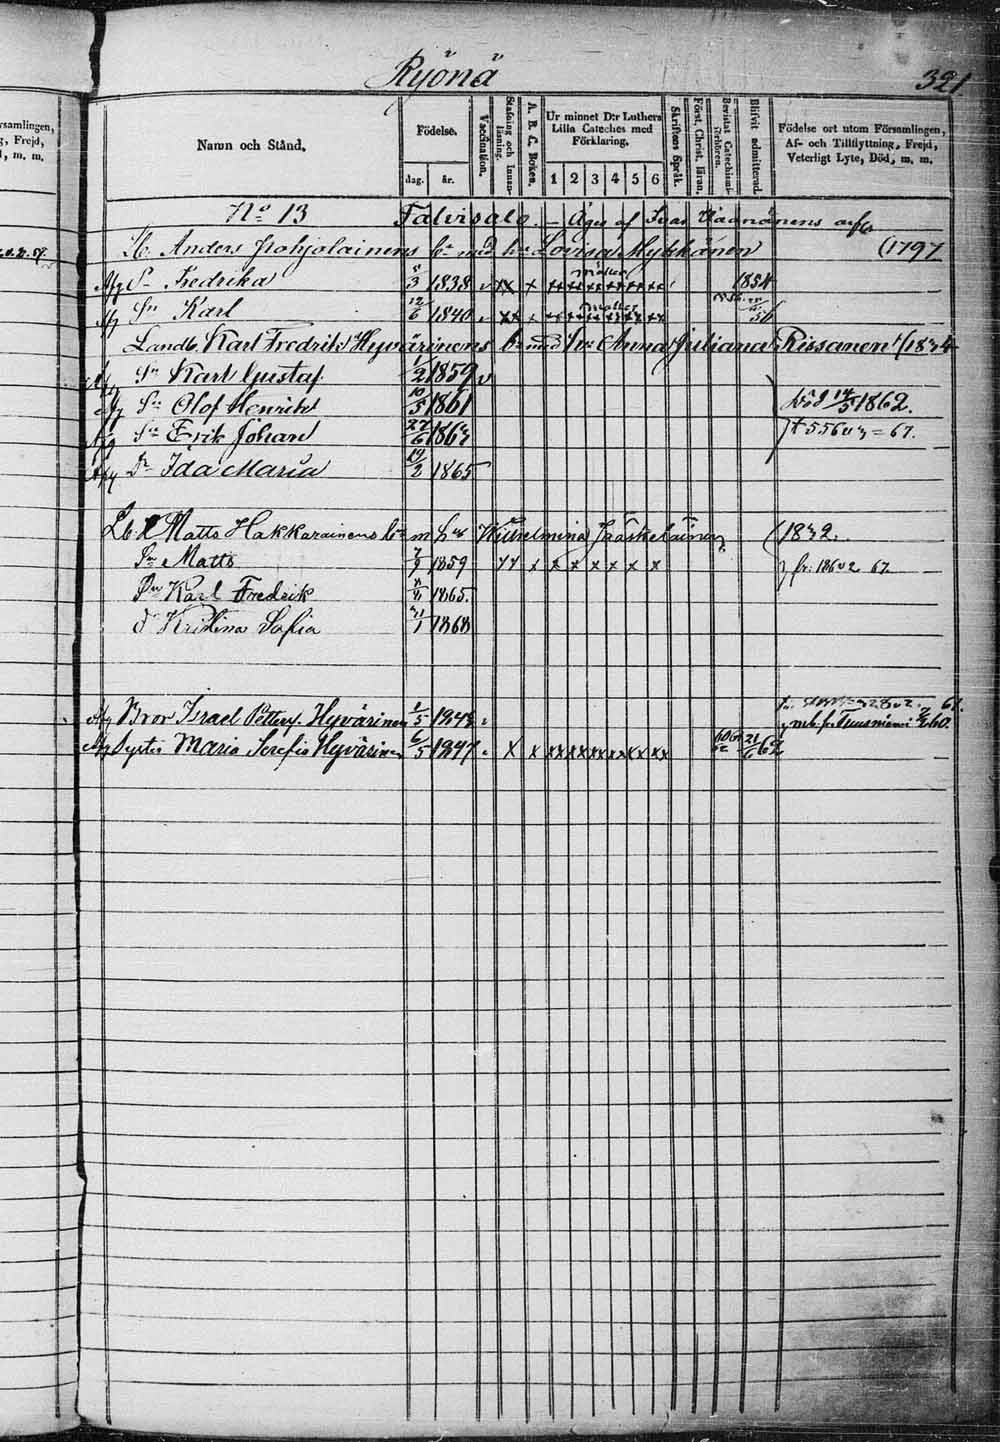 Ryönä
321
rsamlingen,
g, Frejd,
, m. m.
Namn och Stånd,
Födelse.
dag.
år.
Vaccination.
Stafning och Innanläsning.
A. B. C. Boken.
Ur minnet D:r Luthers Lilla Cateches med Förklaring.
1 2 3 4 5 6
Skriftens Språk.
Först. Christ. läran.
Bevistat Catechismiförhören.
Blifvit admitterad.
Födelse ort utom Församlingen, Af- och Tillflyttning, Frejd, Veterligt Lyte, Död, m. m.
No 13 Talvisalo. – Äges af Ivar Väänänens arfv
Anders Pohjolainens med Lovisa Mykkänen (1797
Afg Fredrika 3 1838 v xx x xx xx xx xx xx xx 1854
Afg Sn Karl 12/6 1840 v xx x xx xx xx xx xx xx 56
Landb. Karl Fredrik Hyvärinens med hu Anna Juliana Rissanen (1834
Afg Sn Karl Gustaf 1/2 1859 v
Afg Sn Olof Henrik 10/5 1861 död 14/5 1862.
Afg Sn Erik Johan 27/6 1863 = 67.
Afg Dr Ida Maria 19/2 1865
Lb. Matts Hakkarainens m hu Wilhelmina Jääskeläinen (1832.
Sn Matts 7/9 1859 xx x x x x x x x fr. 67.
Sn Karl Fredrik 1865.
d Kristina Sofia 1868
67.
Afg Bror Israel Petter Hyvärinen 1/5 1843 v 60.
Afg Syster Maria Serefia Hyvärinen 6/5 1847 v x x xx xx xx xx xx xx 21/6 62